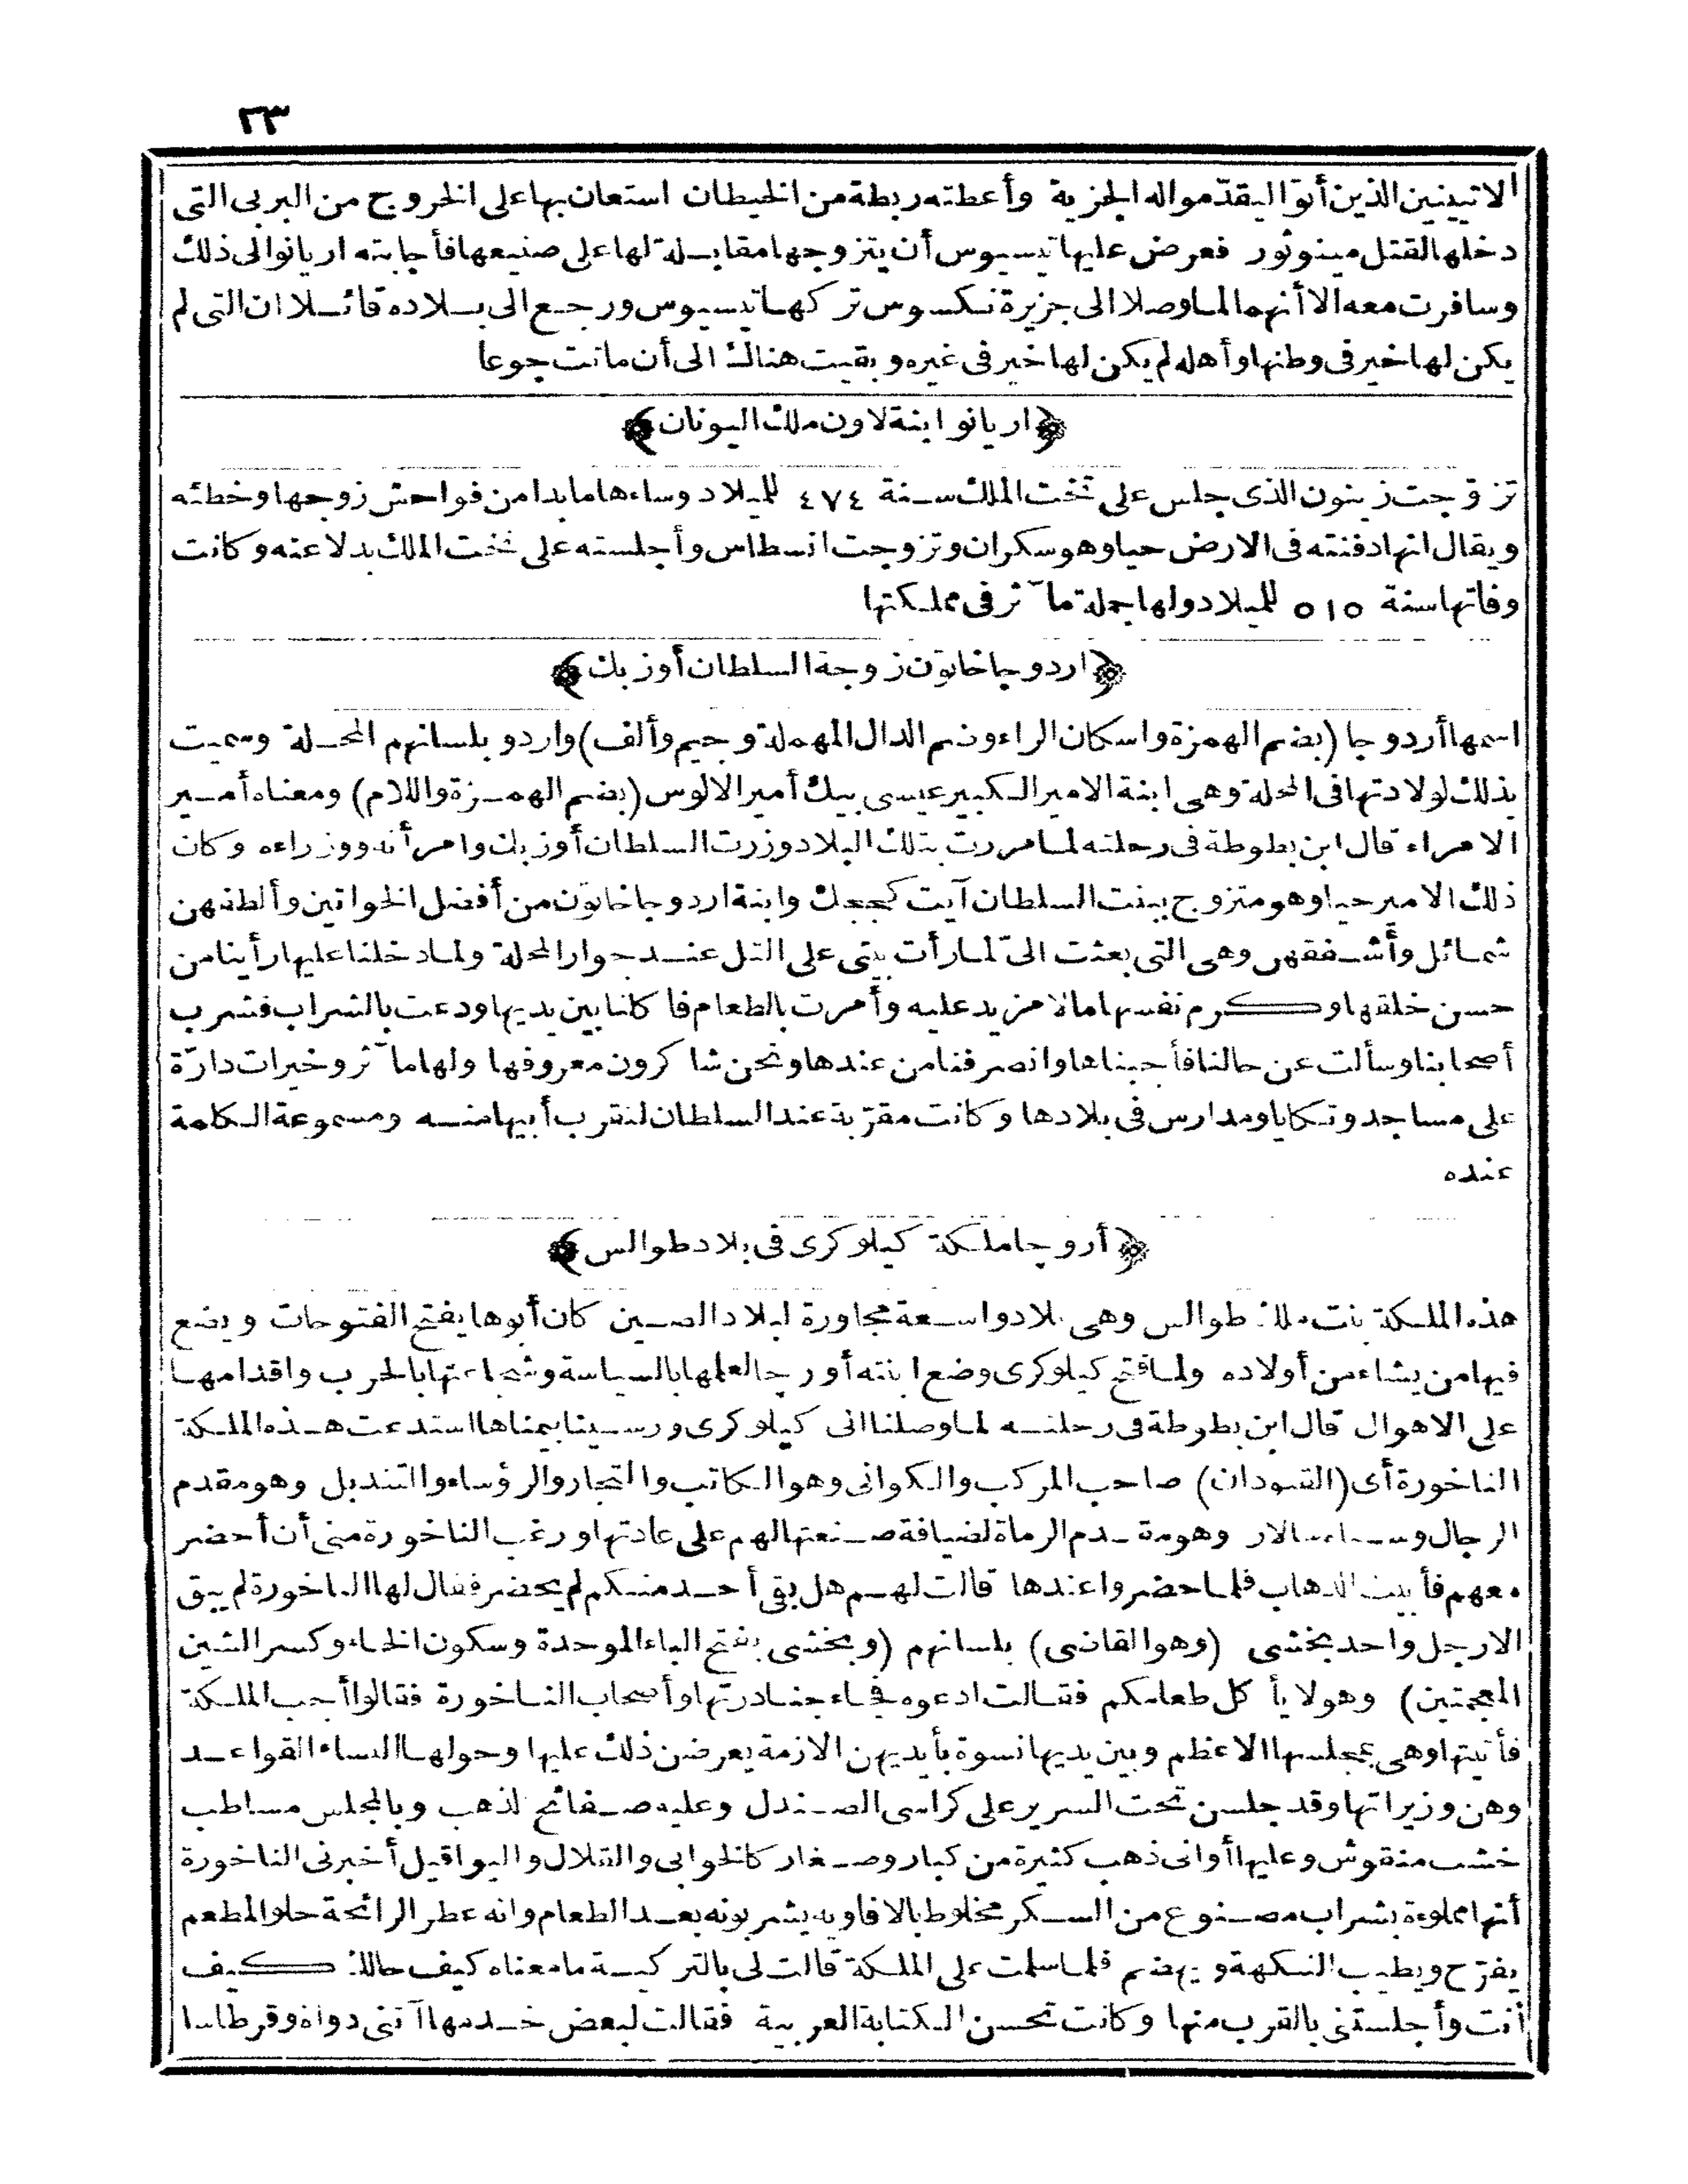 ٢٣
الاتينيين الذين أتوا ليقدّموا له الجزية وأعطته ربطة من الخيطان استعان بها على الخروج من البربى التى
دخلها لقتل مينوثور فعرض عليها تيسيوس أن يتزوجها مقابلة لها على صنيعها فأجابته اريانو الى ذلك
وسافرت معه الا أنهما لما وصلا الى جزيرة نكسوس تركها تيسيوس ورجع الى بلاده قائلا ان التى لم
يكن لها خير فى وطنها وأهله لم يكن لها خير فى غيره وبقيت هناك الى أن ماتت جوعا
﴿اريانو ابنة لاون ملك اليونان﴾
تزوّجت زينون الذى جلس على تخت الملك سنة ٤٧٤ للميلاد وساءها ما بدا من فواحش زوجها وخطئه
ويقال انها دفنته فى الارض حيا وهو سكران وتزوجت انسطاس وأجلسته على تخت الملك بدلا عنه وكانت
وفاتها سنة ٥١٥ للميلاد ولها جملة مآثر فى مملكتها
﴿اردوجا خاتون زوجة السلطان أوزبك﴾
اسمها أردوجا (بضم الهمزة واسكان الراء وضم الدال المهملة وجيم وألف) واردو بلسانهم المحلة وسميت
بذلك لولادتها فى المحلة وهى ابنة الامير الكبير عيسى بيك أمير الالوس (بضم الهمزة واللام) ومعناه أمير
الامراء قال ابن بطوطة فى رحلته لما مررت بتلك البلاد وزرت السلطان أوزبك وامرأته ووزراءه وكان
ذلك الامير حيا وهو متزوج ببنت السلطان آيت كججك وابنة اردوجا خاتون من أفضل الخواتين وألطفهن
شمائل وأشفقهن وهى التى بعثت الىّ لما رأت بيتى على التل عند جوار المحلة ولما دخلنا عليها رأينا من
حسن خلقها وكرم نفسها ما لا مزيد عليه وأمرت بالطعام فاكلنا بين يديها ودعت بالشراب فشرب
أصحابنا وسألت عن حالنا فأجبناها وانصرفنا من عندها ونحن شاكرون معروفها ولها مآثر وخيرات دارّة
على مساجد وتكايا ومدارس فى بلادها وكانت مقرّبة عند السلطان لتقرب أبيها منه ومسموعة الكلمة
عنده
﴿أروجا ملكة كيلوكرى فى بلاد طوالس﴾
هذه الملكة بنت ملك طوالس وهى بلاد واسعة مجاورة لبلاد الصين كان أبوها يفتح الفتوحات ويضع
فيها من يشاء من أولاده ولما فتح كيلوكرى وضع ابنته أورجا لعلمها بالسياسة وشجاعتها بالحرب واقدامها
على الاهوال قال ابن بطوطة فى رحلته لما وصلنا الى كيلوكرى ورسينا بمناها استدعت هذه الملكة
الناخورة أى (القبودان) صاحب المركب والكوانى وهو الكاتب والتجار والرؤساء والتنديل وهو مقدم
الرجال وسباه سالار وهو مقدم الرماة لضيافة صنعتها لهم على عادتها ورغب الناخورة منى أن أحضر
معهم فأبيت الذهاب فلما حضروا عندها قالت لهم هل بقى أحد منكم لم يحضر فقال لها الناخورة لم يبق
الا رجل واحد بخشى (وهو القاضى) بلسانهم (وبخشى بفتح الباء الموحدة وسكون الخاء وكسر الشين
المعجمتين) وهو لا يأكل طعامكم فقالت ادعوه فجاء جنادرتها وأصحاب الناخورة فقالوا أجب الملكة
فأتيتها وهى بمجلسها الاعظم وبين يديها نسوة بأيديهن الازمة يعرضن ذلك عليها وحولها النساء القواعد
وهن وزيراتها وقد جلسن تحت السرير على كراسى الصندل وعليه صفائح لذهب وبالمجلس مساطب
خشب منقوش وعليها أوانى ذهب كثيرة من كبار وصغار كالخوابى والقلال والبواقيل أخبرنى الناخورة
أنها مملوءة بشراب مصنوع من السكر مخلوط بالافاويه يشربونه بعد الطعام وانه عطر الرائحة حلو المطعم
يفرّح ويطيب النكهة ويهضم فلما سلمت على الملكة قالت لى بالتركية ما معناه كيف حالك كيف
أنت وأجلستنى بالقرب منها وكانت تحسن الكتابة العربية فقالت لبعض خدمها آتنى دواة وقرطاسا